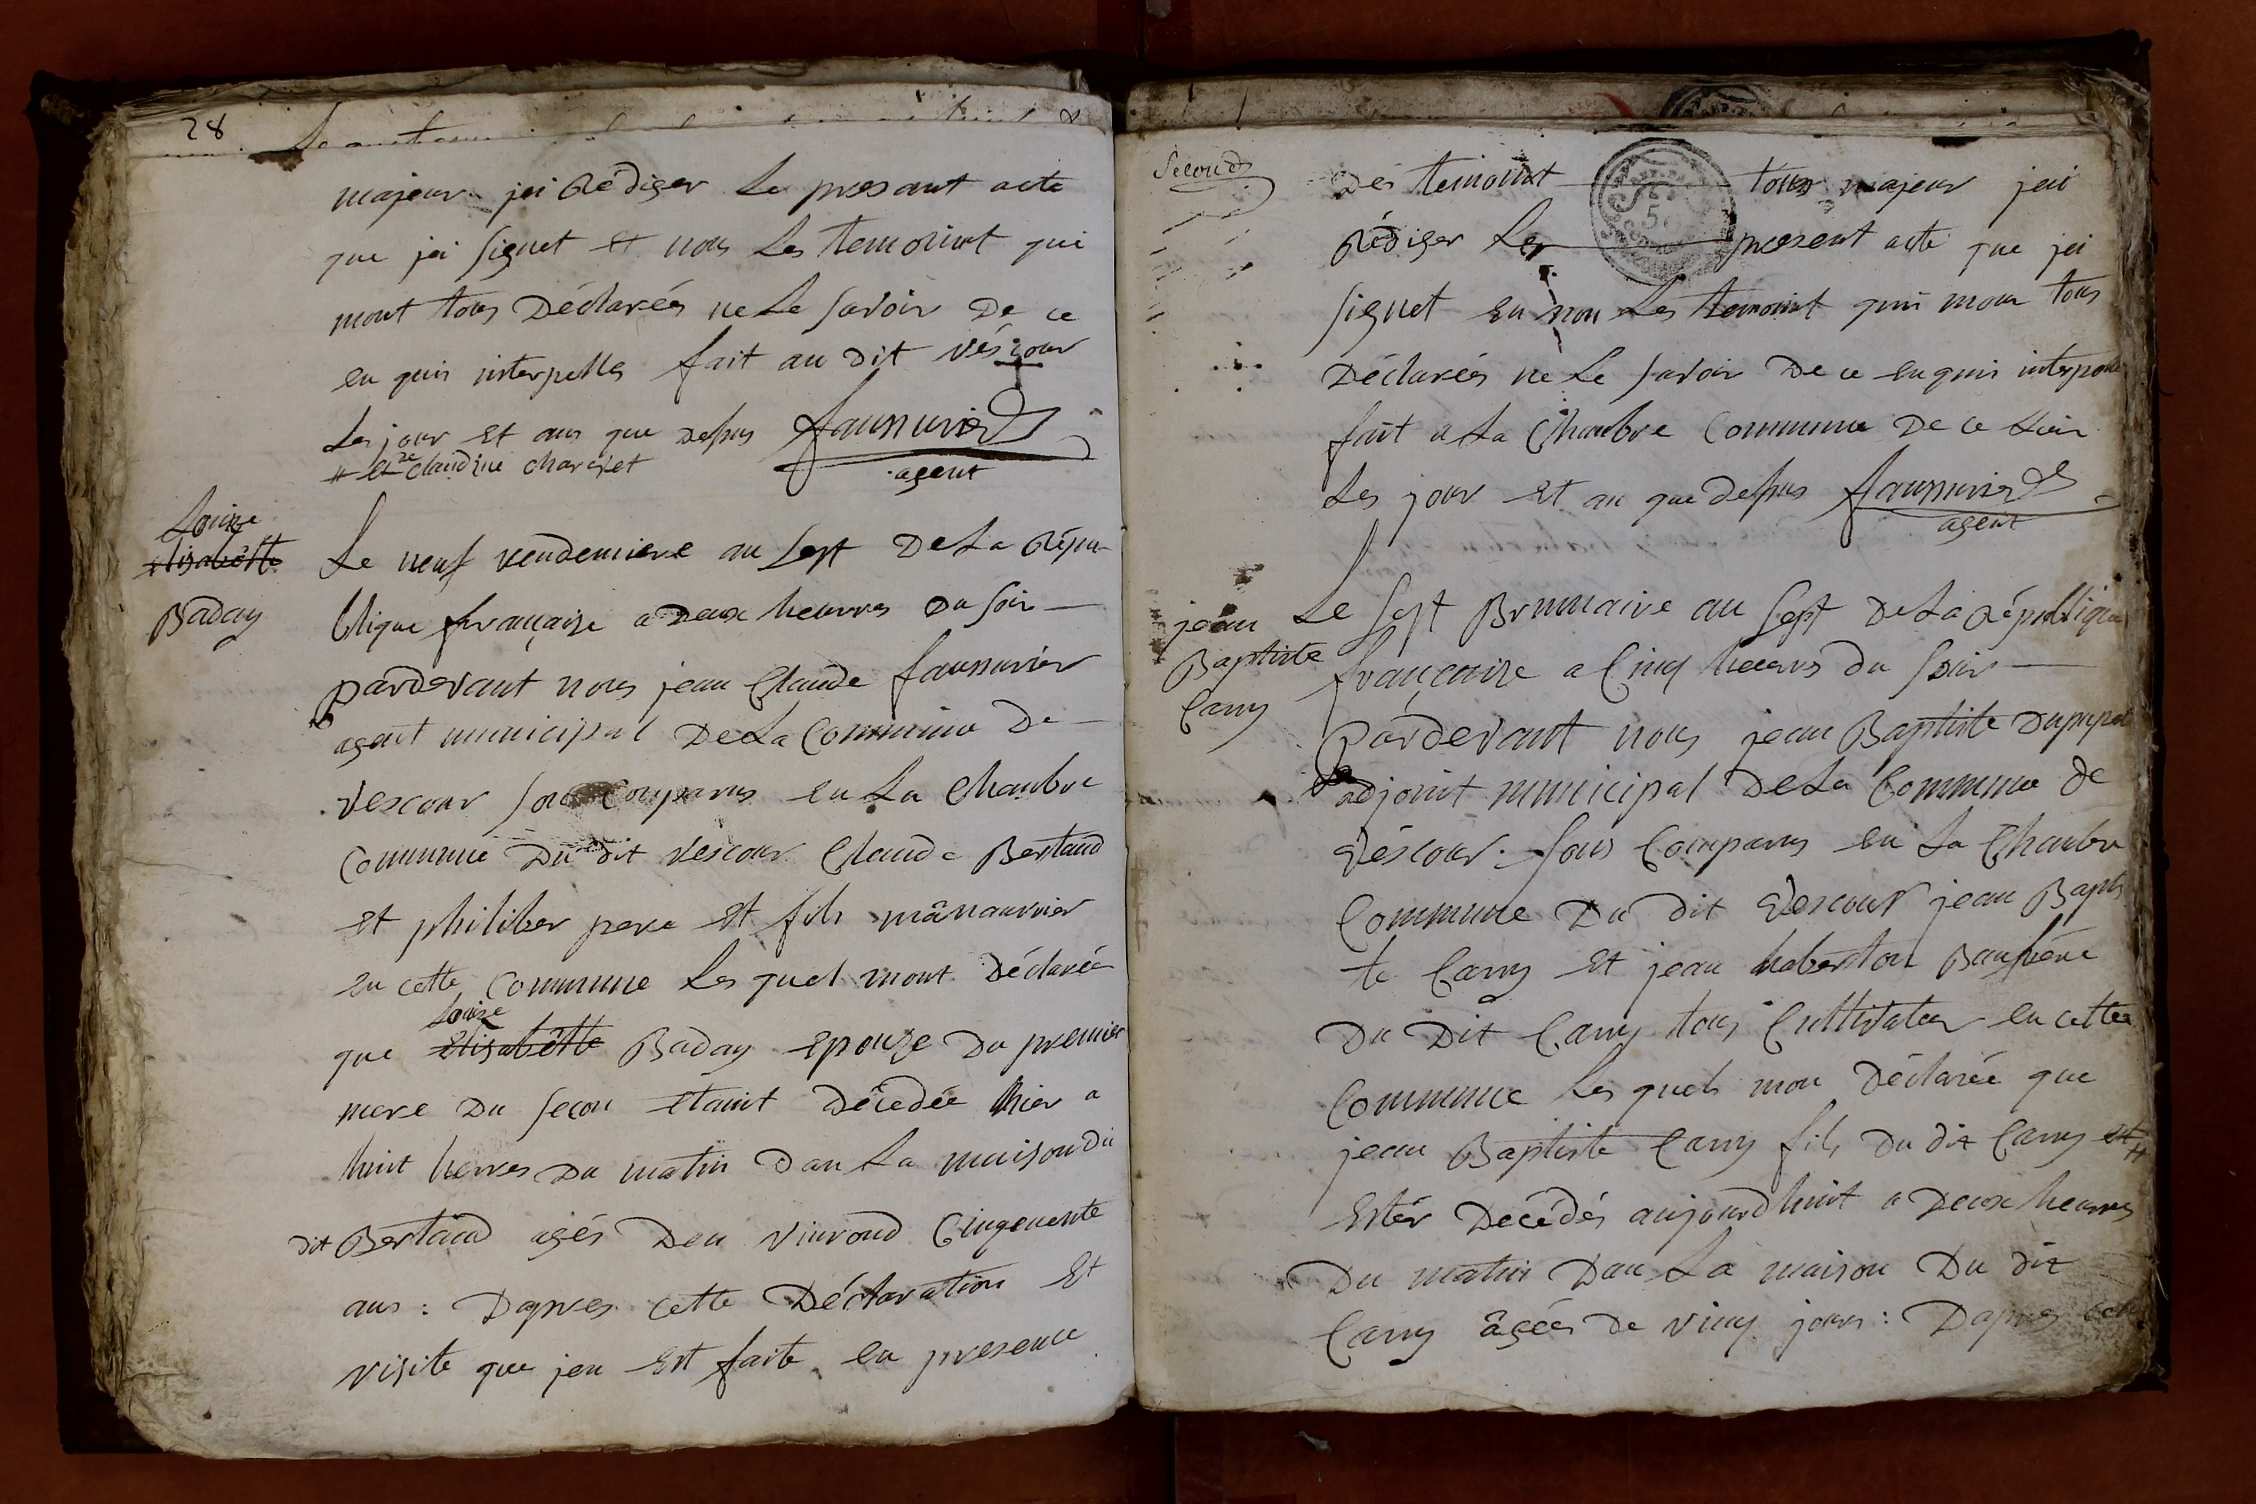 28
majeur jai Rédiger Le presant acte
que jai signet et nous Les temoint qui
mont tous Déclarées ne Le savoir De ce
en quis interpelles fait au dit vescour
Les jour et ans que Depus faussurier
# et Claudine charriet agent
Louize
elisabette
Baday
Le neuf vendemiere an sept De La Répu-
blique française a Deux heurres Du soir
pardevant nous jean Claude faussurier
agent municipal De La Commune De
vescour sons Comparus en La Chambre
Commune Du dit vescour Claude Bertaud
et philiber pere et fils manauvrier
en cette Commune Les quel mont Déclarée
Louize
que Elisabette Baday Epouze Du premier
mere Du secon étaint Décedée hier a
huit heures Du matin Dan La maison Du
dit Bertaud agés Den vinrond Cinquente
ans : Dapres cette Déclaration et
visite que jen est faite en presence
Second
Des temoint tous majeur jai
Rédiger Le present acte que jai
signet en non Les temoint quis mon tous
Déclarées ne Le savoir De ce en quis interpelle
fait a La Chambre Commune De ce Lieu
Les jour et an que Depus faussurier
agent
jean
Baptiste
Cany
Le sept Brumaire an sept De La Républiqu
françaize a Cinq heures Du soir
Pardevant nous jean Baptiste
adjoint municipal De La Commune de
vescour sons Comparus en La Chambre
Commune Du dit vescour jean Baptis
te Cany et jean Beaufrére
Du Dit Cany tous Cultivateur en cette
Commune Les quels mon Déclarée que
jean Baptiste Cany fils Du dit Cany et #
Estér Decédés aujourdhuit a Deux heurres
Du matin Dan La maison Du dit
Cany âgées de vinq jours : Dapres cette